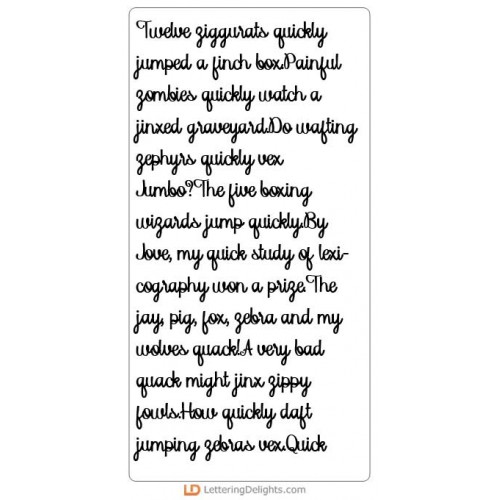 Twelve ziggurats quickly
jumped a finch box.Painful
zombies quickly watch a
jinxed graveyard.Do wafting
zephyrs quickly vex
Jumbo?The five boxing
wizards jump quickly.By
Jove, my quick study of lexi-
cography won a prize.The
jay, pig, fox, zebra and my
wolves quack!A very bad
quack might jinx zippy
fowls.How quickly daft
jumping zebras vex.Quick
LD LetteringDelights.com